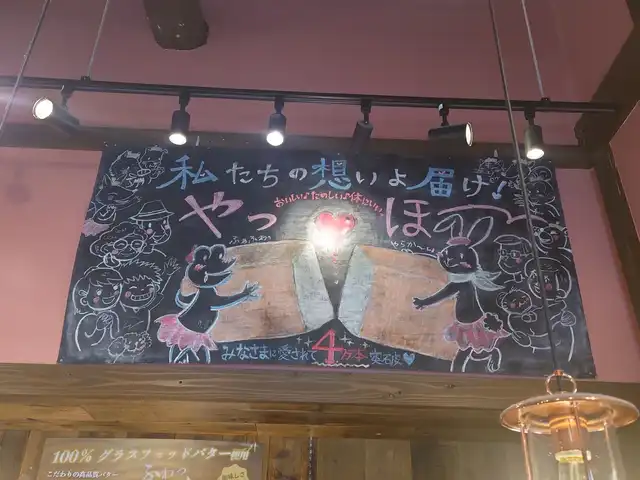 私たちの想いよ届け!
おいしい♪たのしい♪体にいい♪
やっほ〜
ふわふわ
やらか〜い
みなさまに愛されて4万本突破
100% グラスフェッドバター使用
こだわりの高品質バター